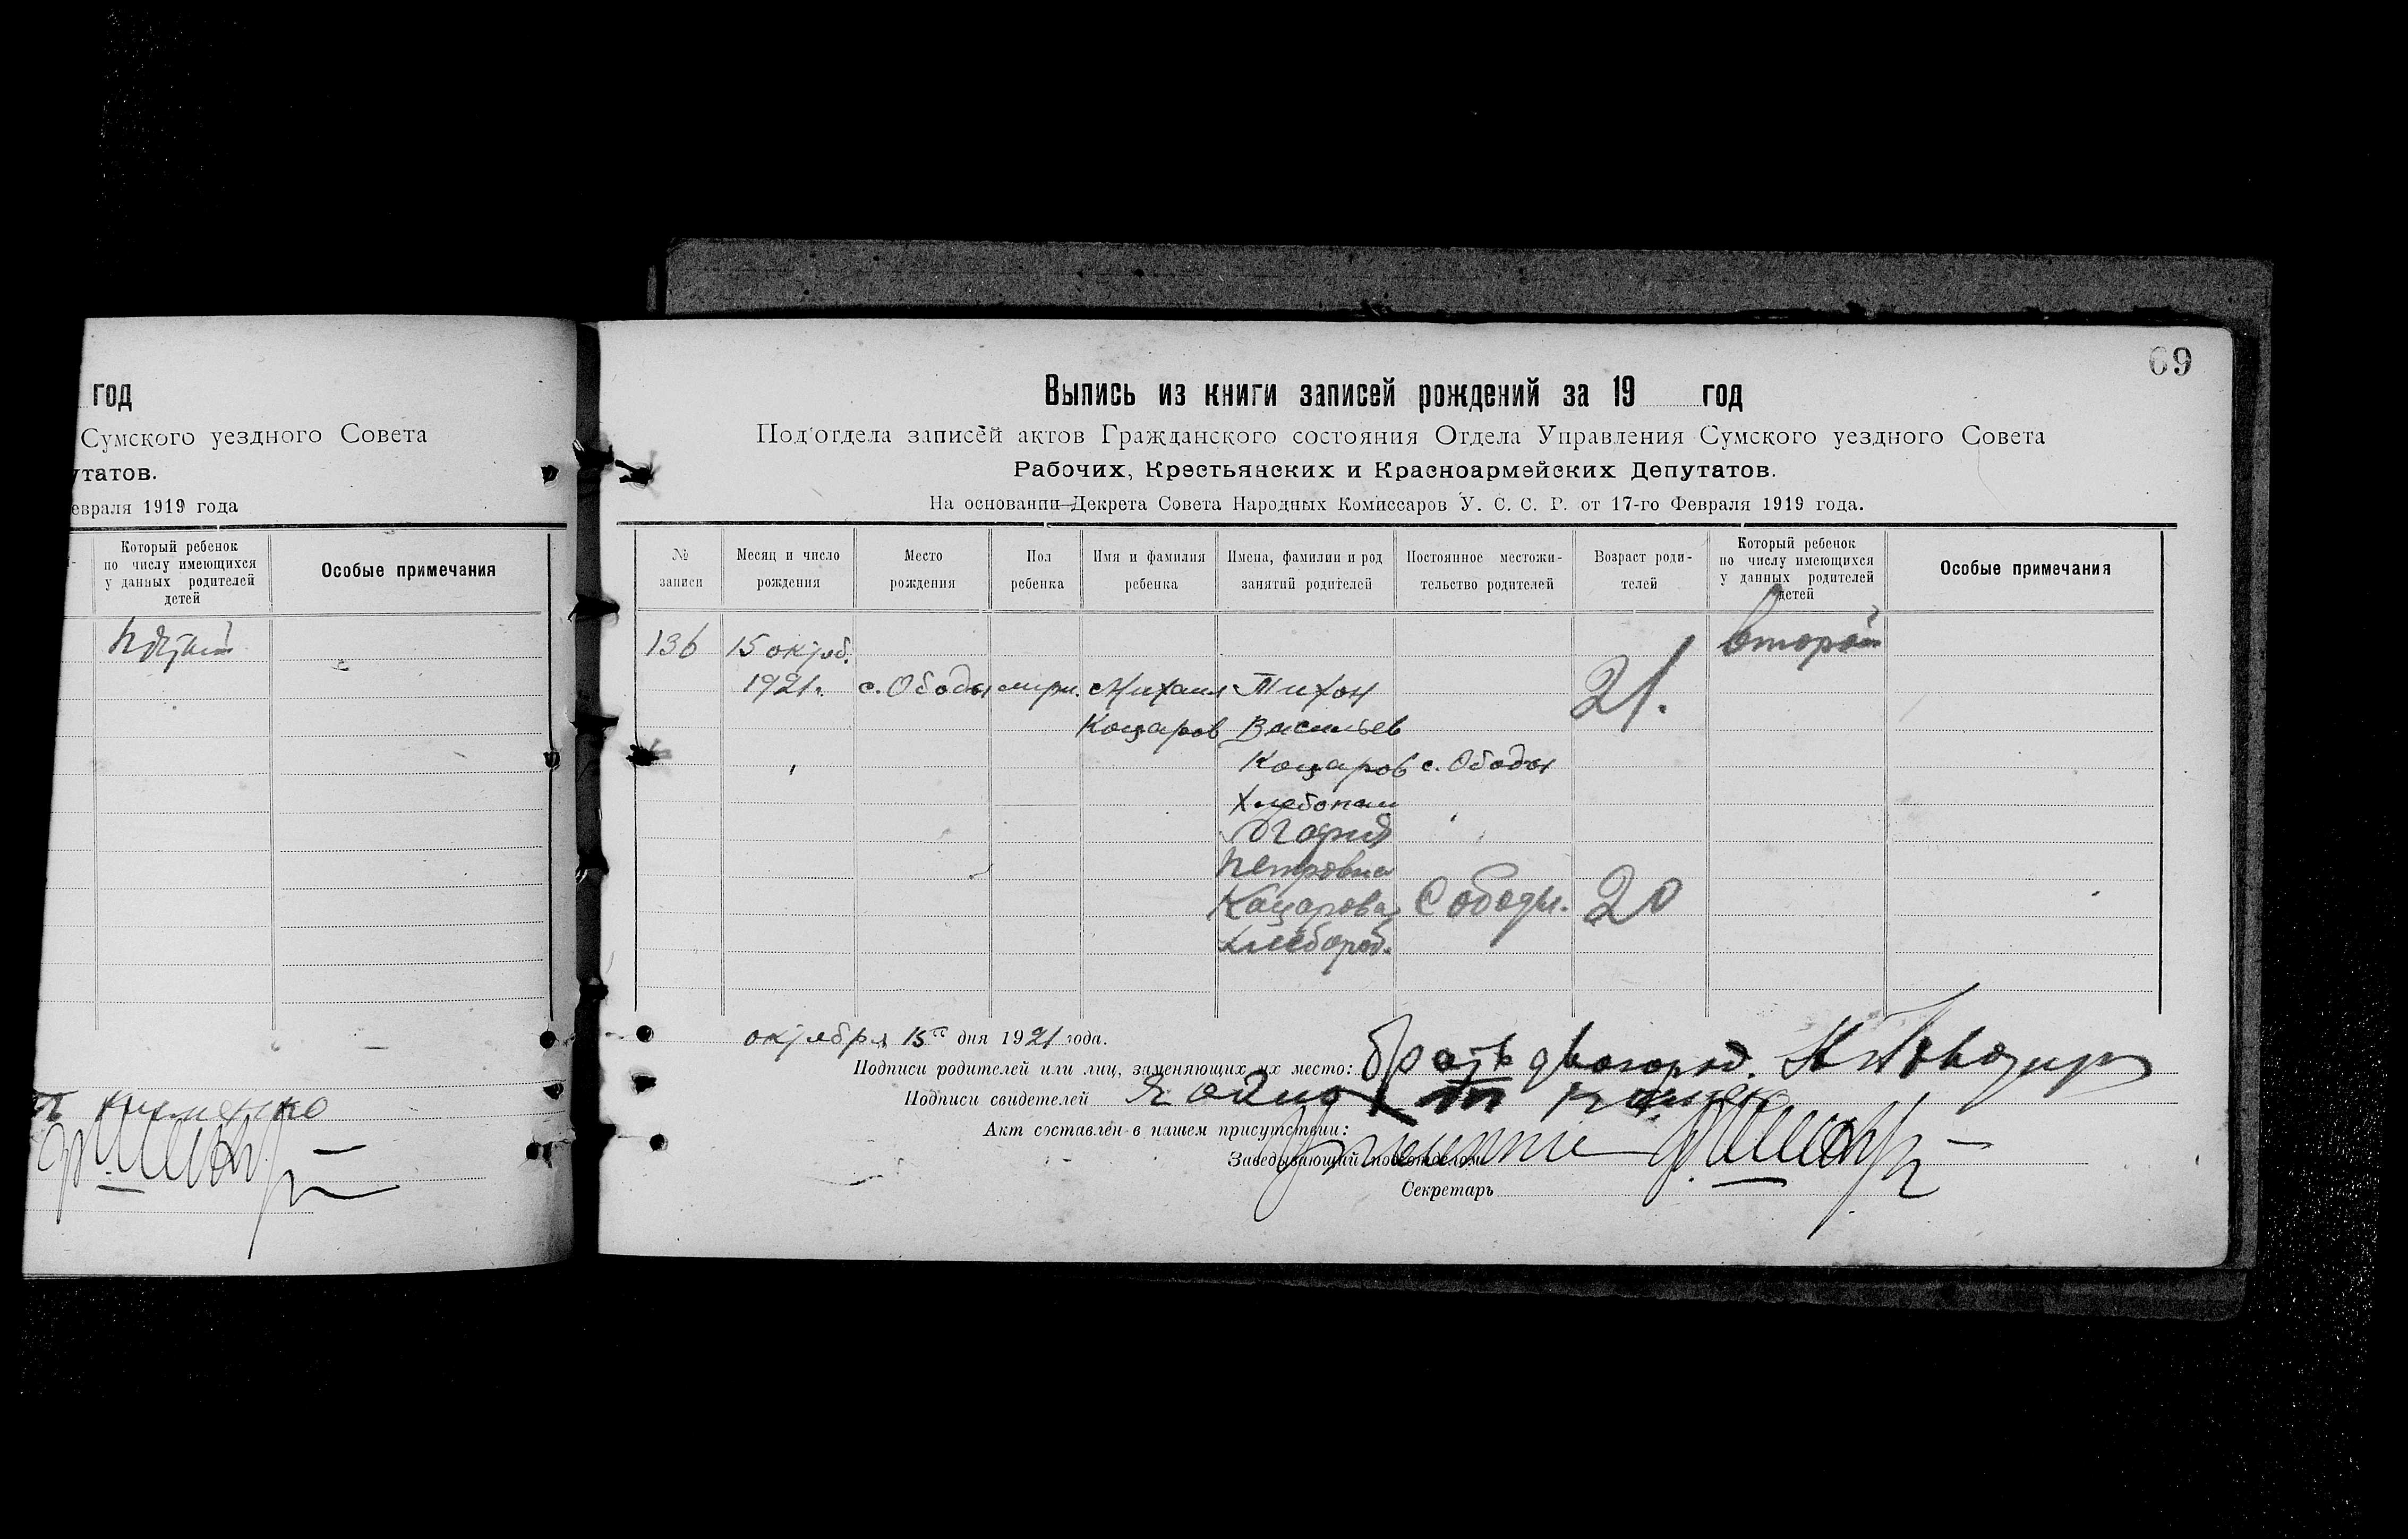 год
Сумского уездного Совета
утатов.
евраля 1919 года
Который ребенок
по числу имеющихся
у данных родителей
детей
Особые примечания
69
Выпись из книги записей рождений за 19 год
Под'отдела записей актов Гражданского состояния Отдела Управления Сумского уездного Совета
Рабочих, Крестьянских и Красноармейских Депутатов.
На основании Декрета Совета Народных Комиссаров У. С. С. Р. от 17-го Февраля 1919 года.
№ записи
Месяц и число рождения
Место рождения
Пол ребенка
Имя и фамилия ребенка
Имена, фамилии и род занятий родителей
Постоянное местожи-
тельство родителей
Возраст роди-
телей
Который ребенок
по числу имеющихся
у данных родителей
детей
Особые примечания
136 15 октяб. второй
1921 г. с. Ободы Михаил Тихон 21.
Коцаров Васильев
Коцаров с. Ободы
Хлебопаш
Петровна
Кацарова С Ободы. 20
Хлебороб.
октября 15го дня 1921 года.
Подписи родителей или лиц, заменяющих их место: брать двоюрод.
Подписи свидетелей
Акт составлен в нашем присутствии:
Заведывающий подотделом
Секретарь